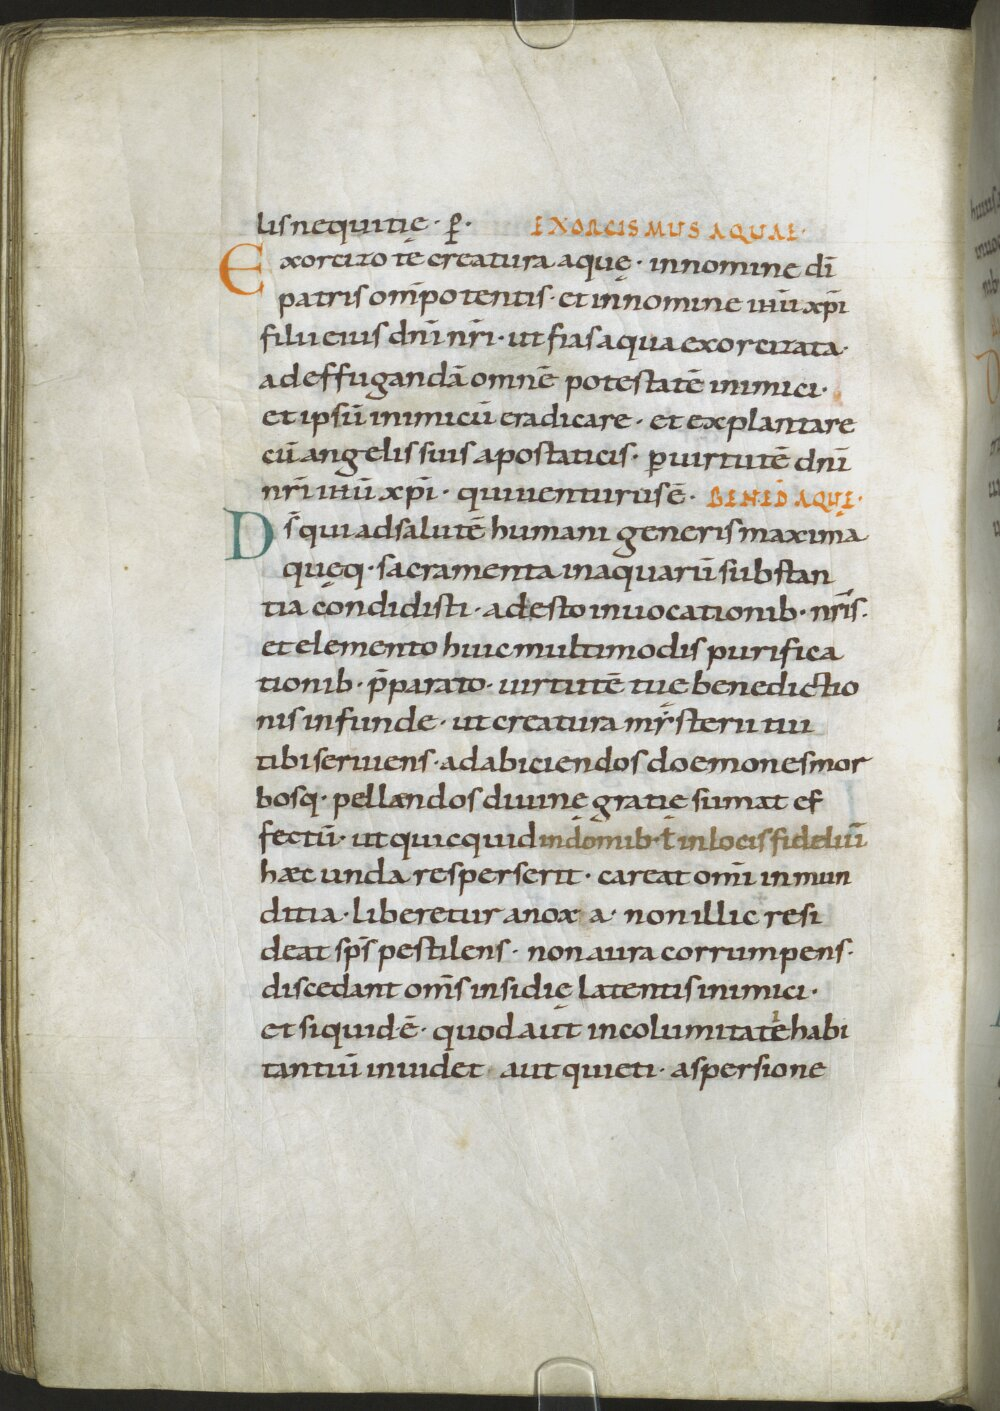 lis nequitię · p̄ · EXORCISMUS AQUAE ·
Exorcizo te creatura aquę · in nomine dī
patris om̄potentis · et in nomine ihū xp̄i
filii eius dn̄i nr̄i · ut fias aqua exorcizata ·
ad effugandā omnē potestatē inimici ·
et ipsū inimicū eradicare · et explantare
cū angelis suis apostaticis · ꝑ uirtutē dn̄i
nr̄i ihū xp̄i · qui uenturus ē · BENED̄ AQUĘ ·
Ds̄ qui ad salutē humani generis maxima
quęq · sacramenta in aquarū substan
tia condidisti · adesto inuocationib · nr̄is ·
et elemento huic multimodis purifica
tionib · p̄parato · uirtutē tuę benedictio
nis infunde · ut creatura mẏsterii tui
tibi seruiens · ad abiciendos doemones mor
bosq · pellendos diuinę gratię sumat ef
fectū · ut quicquid in domib · ł in locis fideliū
hæc unda resperserit · careat om̄i inmun
ditia · liberetur a nox a · non illic resi
deat sp̄s pestilens · non aura corrumpens ·
discedant om̄s insidię latentis inimici ·
et si quid ē · quod aut incolumitatē habi
tantiū inuidet aut quieti · aspersione